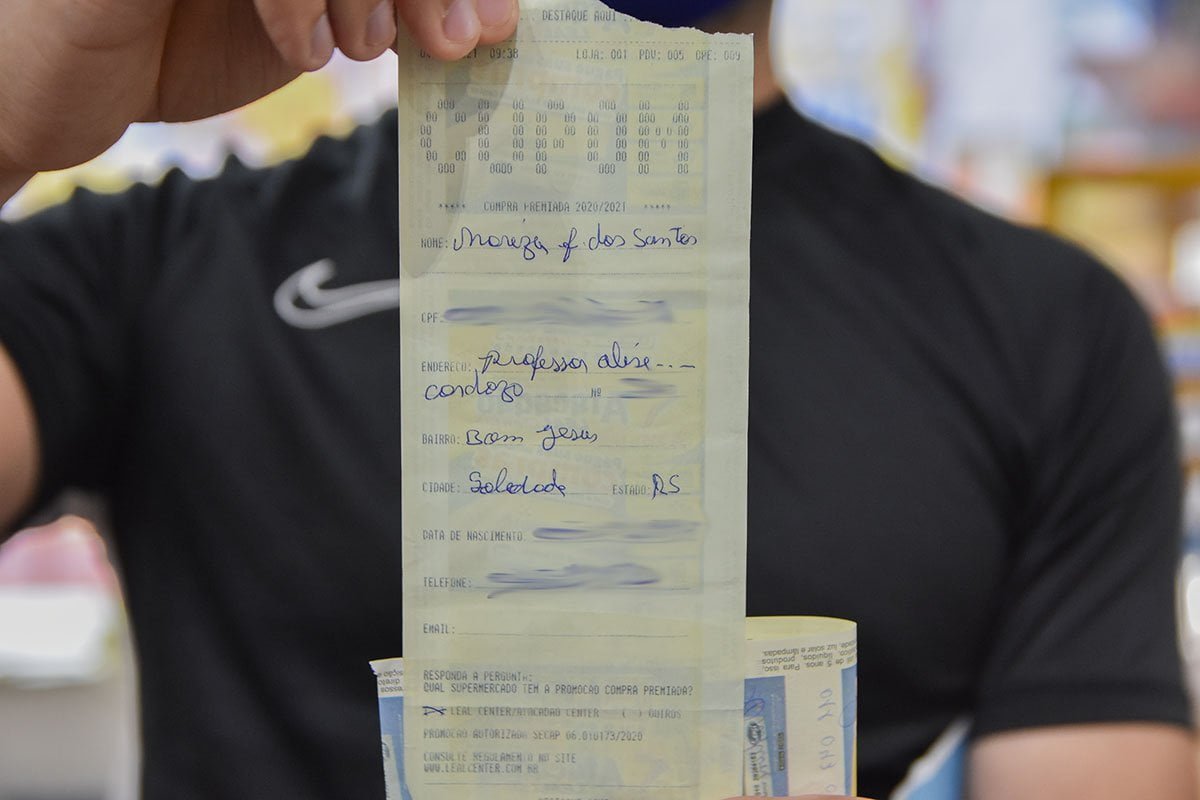 ... DESTAQUE AQUI
09:38 LOJA: 001 PDV: 005 OPE: 009
***** COMPRA PREMIADA 2020/2021 *****
NOME: Mariza f. dos Santos
CPF:
ENDERECO: Professor alise ---
cardozo Nº
BAIRRO: Bom Jesus
CIDADE: Soledade ESTADO: RS
DATA DE NASCIMENTO:
TELEFONE:
EMAIL:
RESPONDA A PERGUNTA:
QUAL SUPERMERCADO TEM A PROMOCAO COMPRA PREMIADA?
(X) LEAL CENTER/ATACADAO CENTER ( ) OUTROS
PROMOCAO AUTORIZADA SECAP 06.010173/2020
CONSULTE REGULAMENTO NO SITE
WWW.LEALCENTER.COM.BR
de 5 anos. Para isso,
líquidos, produtos
luz solar e lâmpadas.